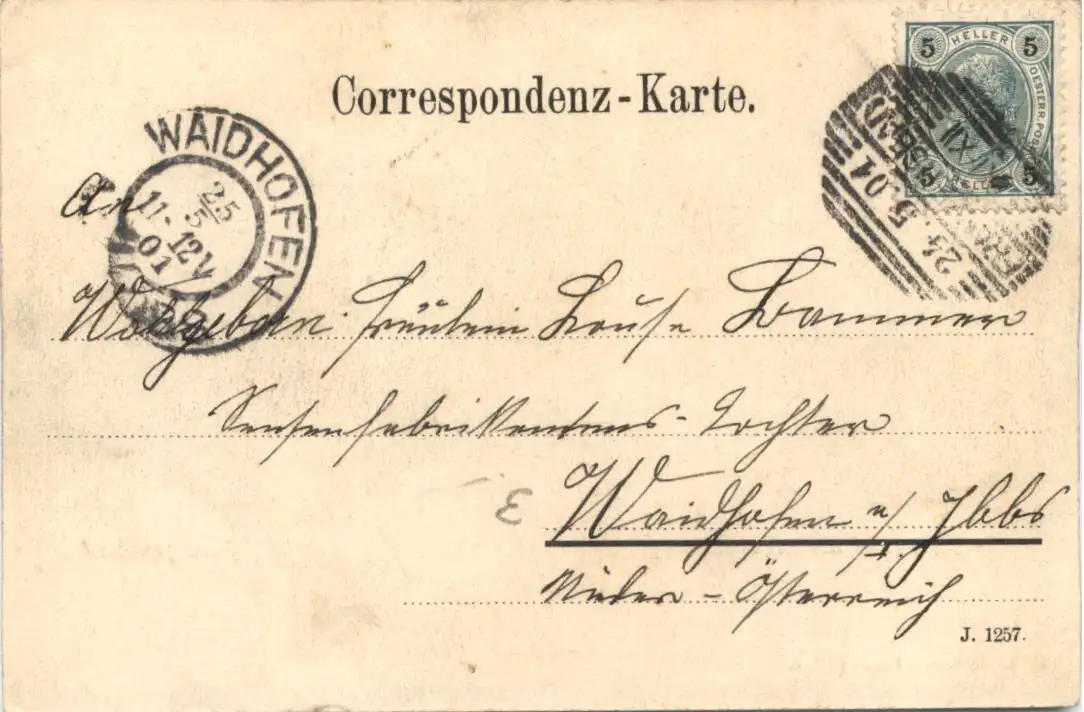 Correspondenz-Karte.
5 HELLER 5
OESTERR. POST
5 HELLER 5
24. 5. 01
XII
WAIDHOFEN
25/5
11-12V
01
An
Wohlgeboren Fräulein Louise Bammer
Sensenfabrikantens-Tochter
Waidhofen a/d. Ybbs
Nieder-Österreich
3
J. 1257.